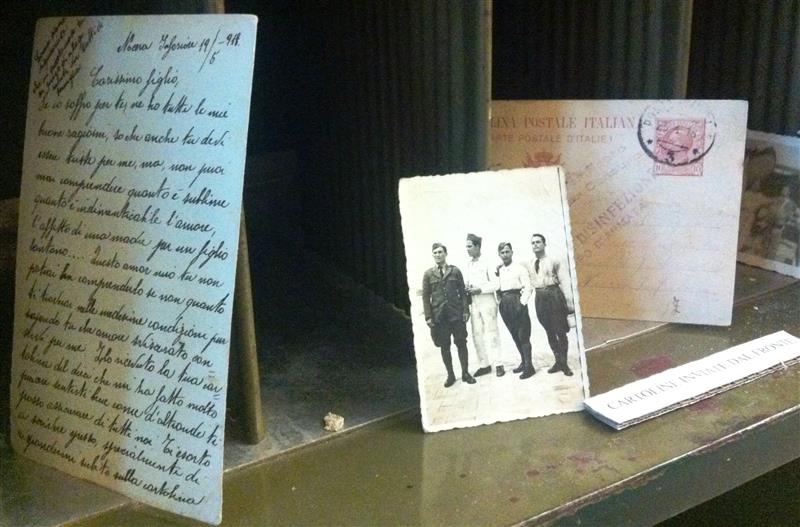 Nocera Inferiore 19/5 -918.
Carissimo figlio,
Se io soffro per te, ne ho tutte le mie
buone ragioni, so che anche tu devi
essere triste per me, ma, non puoi
mai comprendere quanto è sublime
quanto è indimenticabile l'amore,
l'affetto di una madre per un figlio
lontano.... Questo amor mio tu non
potrai ben comprenderlo se non quando
ti troverai nelle medesime condizioni pur
sapendo tu che amore sviscerato con=
servi per me. Ho ricevuto la tua car=
tolina del dieci che mi ha fatto molto
piacere sentirti bene come d'altronde ti
posso assicurare di tutti noi. Ti esorto
a scrivere spesso, specialmente di
subito sulla cartolina
LINA POSTALE ITALIAN
RTE POSTALE D'ITALIE)
10 10
3
DISINFEZIONE
CARTOLINE INVIATE DAL FRONTE